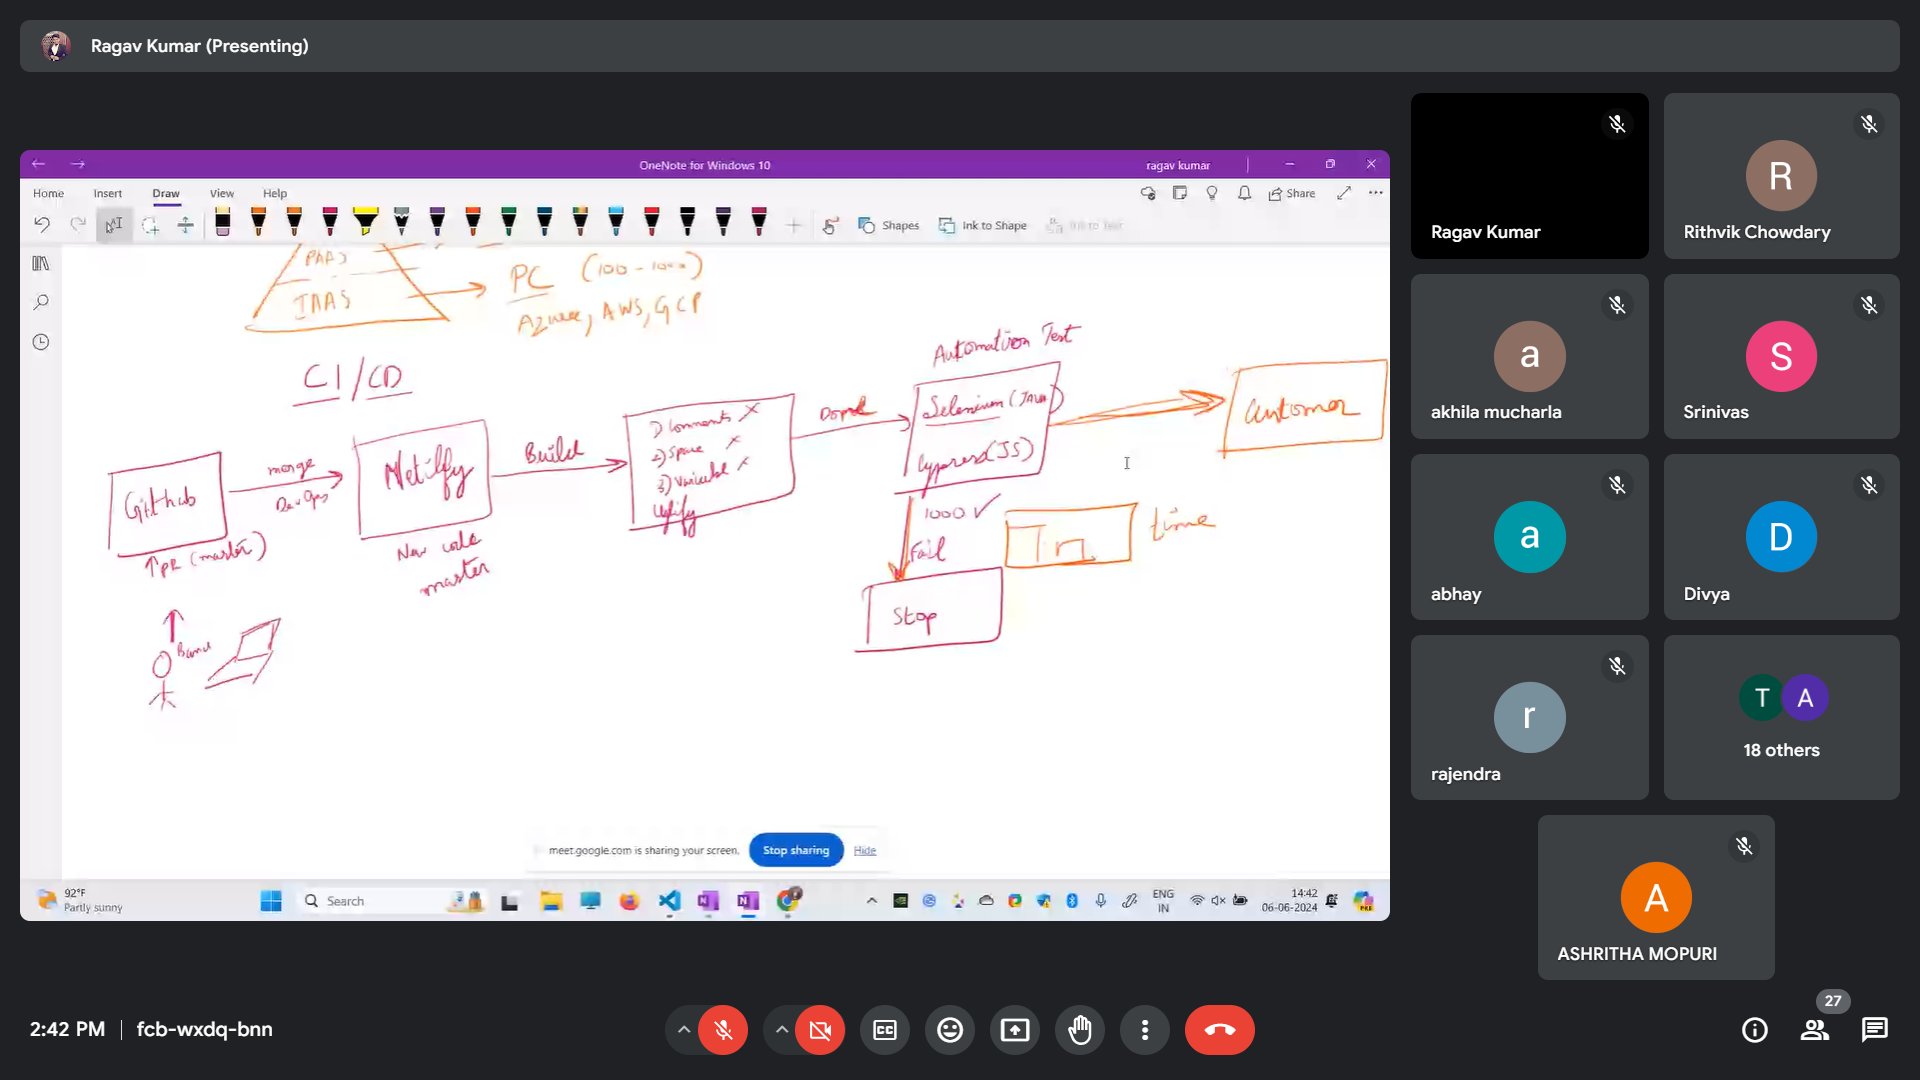 Ragav Kumar (Presenting)
OneNote for Windows 10
ragav kumar
Home
Insert
Draw
View
Help
Share
Shapes
Ink to Shape
Ink to Text
PAAS
IAAS
PC
Azure, AWS, GCP
CI/CD
Github
↑PR (master)
merge
DevOps
Netilfy
New code
master
Build
1) Comments X
2) Space X
3) Variable X
Uglify
Done
Automation Test
Selenium (JAVA)
Cypress (JS)
1000 ✓
Fail
Stop
time
Customer
meet.google.com is sharing your screen.
Stop sharing
Hide
92°F
Partly sunny
Search
ENG
IN
14:42
06-06-2024
Ragav Kumar
R
Rithvik Chowdary
a
akhila mucharla
S
Srinivas
a
abhay
D
Divya
r
rajendra
T
A
18 others
A
ASHRITHA MOPURI
2:42 PM
fcb-wxdq-bnn
CC
27